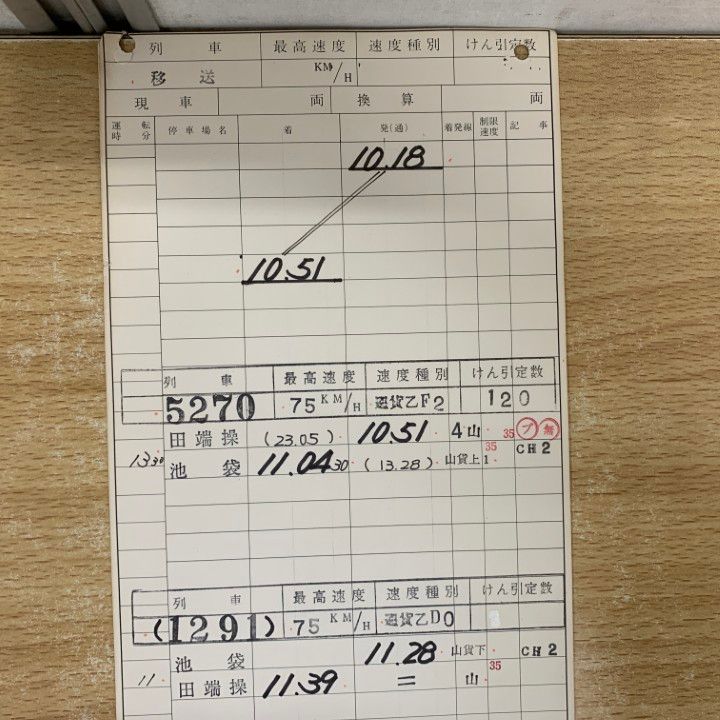 列 車 最高速度 速度種別 けん引定数
移 送 KM/H
現 車 両 換 算 両
運転時分 停車場名 着 発(通) 着発線 制限速度 記 事
10.18
10.51
列 車 最高速度 速度種別 けん引定数
5270 75 KM/H 通貨乙F2 120
田端操 (23.05) 10.51 4山 35 プ 無
13 30 池 袋 11.04 30 (13.28) 山貨上1 35 CH2
列 車 最高速度 速度種別 けん引定数
(1291) 75 KM/H 通貨乙D0
池 袋 11.28 山貨下 35 CH2
11 田端操 11.39 = 山